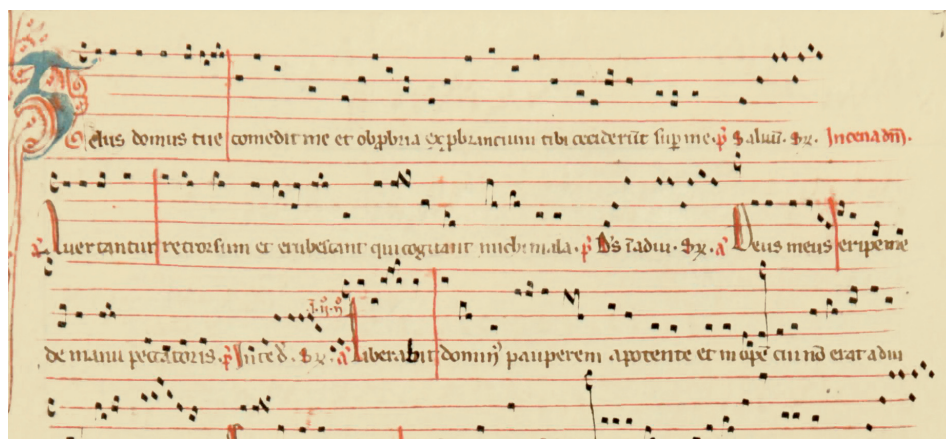 Zelus domus tue comedit me et obp̱bria exp̱brantium tibi ceciderūt sup̱ me. p̄s Saluū. Ꝝ. In cena dn̄i.
Auertantur retrorsum et erubescant qui cogitant michi mala. p̄s Ds̄ ī adiu. a᷒ Deus meus eripe me
de manu peccatoris. p̄s In te d̄. a᷒ Liberabit domin᷒ pauperem a potente et inopē cui nō erat adiu